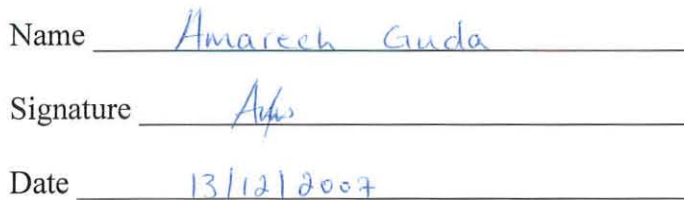 Name Amarech Guda
Signature
Date 13/12/2007